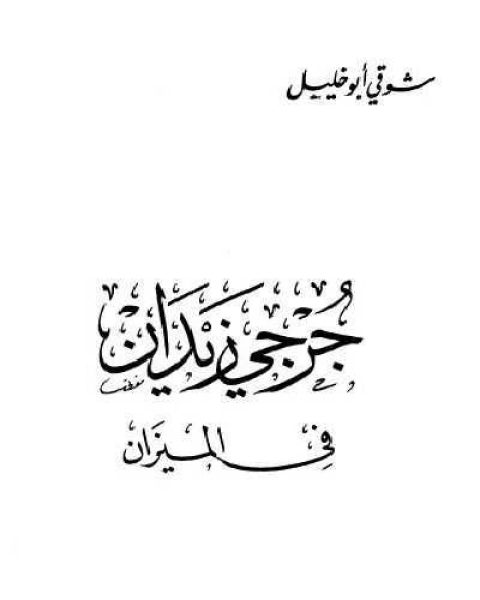 شوقي أبو خليل
جُرجي زَيْدَان
في الميزان